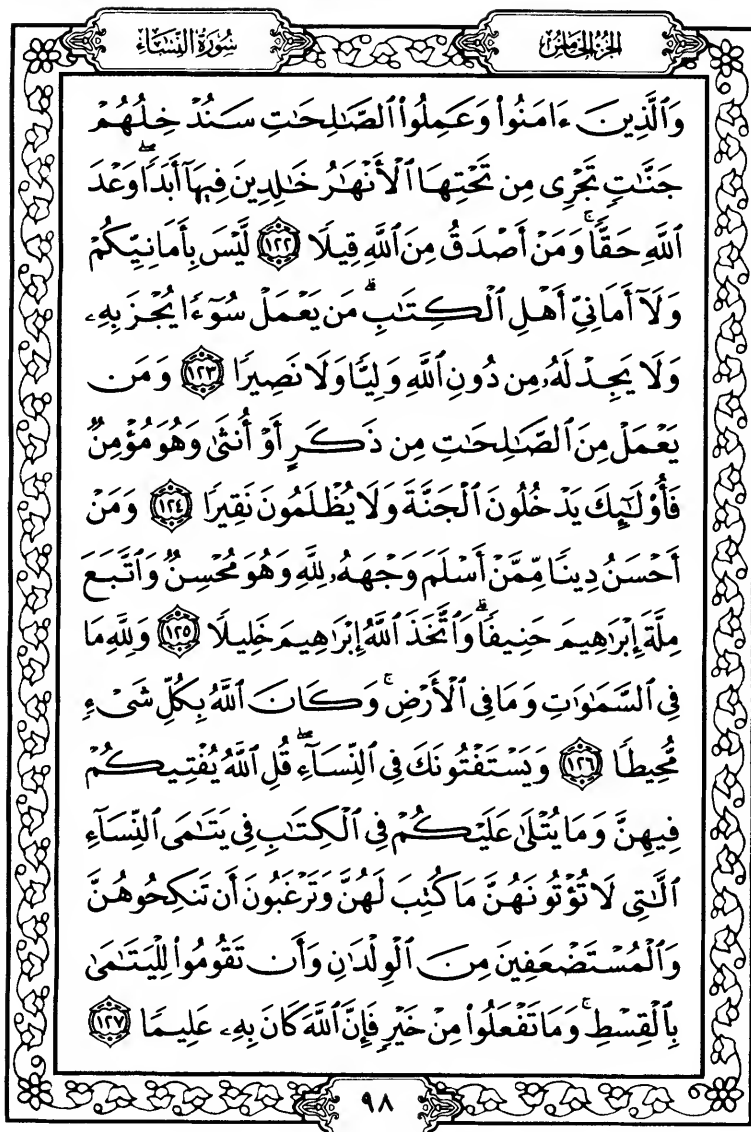 سُورَةُ النِّسَاءِ
الجُزْءُ الخَامِسُ
وَٱلَّذِينَ ءَامَنُوا۟ وَعَمِلُوا۟ ٱلصَّـٰلِحَـٰتِ سَنُدْخِلُهُمْ
جَنَّـٰتٍ تَجْرِى مِن تَحْتِهَا ٱلْأَنْهَـٰرُ خَـٰلِدِينَ فِيهَآ أَبَدًاۖ وَعْدَ
ٱللَّهِ حَقًّاۚ وَمَنْ أَصْدَقُ مِنَ ٱللَّهِ قِيلًا ١٢٢ لَّيْسَ بِأَمَانِيِّكُمْ
وَلَآ أَمَانِىِّ أَهْلِ ٱلْكِتَـٰبِۗ مَن يَعْمَلْ سُوٓءًا يُجْزَ بِهِۦ
وَلَا يَجِدْ لَهُۥ مِن دُونِ ٱللَّهِ وَلِيًّا وَلَا نَصِيرًا ١٢٣ وَمَن
يَعْمَلْ مِنَ ٱلصَّـٰلِحَـٰتِ مِن ذَكَرٍ أَوْ أُنثَىٰ وَهُوَ مُؤْمِنٌ
فَأُو۟لَـٰٓئِكَ يَدْخُلُونَ ٱلْجَنَّةَ وَلَا يُظْلَمُونَ نَقِيرًا ١٢٤ وَمَنْ
أَحْسَنُ دِينًا مِّمَّنْ أَسْلَمَ وَجْهَهُۥ لِلَّهِ وَهُوَ مُحْسِنٌ وَٱتَّبَعَ
مِلَّةَ إِبْرَٰهِيمَ حَنِيفًاۗ وَٱتَّخَذَ ٱللَّهُ إِبْرَٰهِيمَ خَلِيلًا ١٢٥ وَلِلَّهِ مَا
فِى ٱلسَّمَـٰوَٰتِ وَمَا فِى ٱلْأَرْضِۚ وَكَانَ ٱللَّهُ بِكُلِّ شَىْءٍ
مُّحِيطًا ١٢٦ وَيَسْتَفْتُونَكَ فِى ٱلنِّسَآءِۖ قُلِ ٱللَّهُ يُفْتِيكُمْ
فِيهِنَّ وَمَا يُتْلَىٰ عَلَيْكُمْ فِى ٱلْكِتَـٰبِ فِى يَتَـٰمَى ٱلنِّسَآءِ
ٱلَّـٰتِى لَا تُؤْتُونَهُنَّ مَا كُتِبَ لَهُنَّ وَتَرْغَبُونَ أَن تَنكِحُوهُنَّ
وَٱلْمُسْتَضْعَفِينَ مِنَ ٱلْوِلْدَٰنِ وَأَن تَقُومُوا۟ لِلْيَتَـٰمَىٰ
بِٱلْقِسْطِۚ وَمَا تَفْعَلُوا۟ مِنْ خَيْرٍ فَإِنَّ ٱللَّهَ كَانَ بِهِۦ عَلِيمًا ١٢٧
٩٨